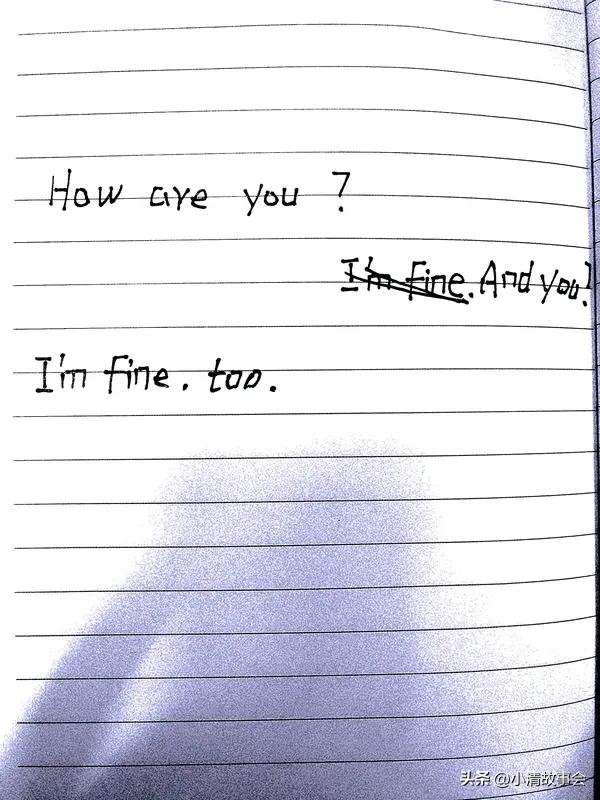 How are you ?
I'm fine. And you?
I'm fine. too.
头条 @小清故事会